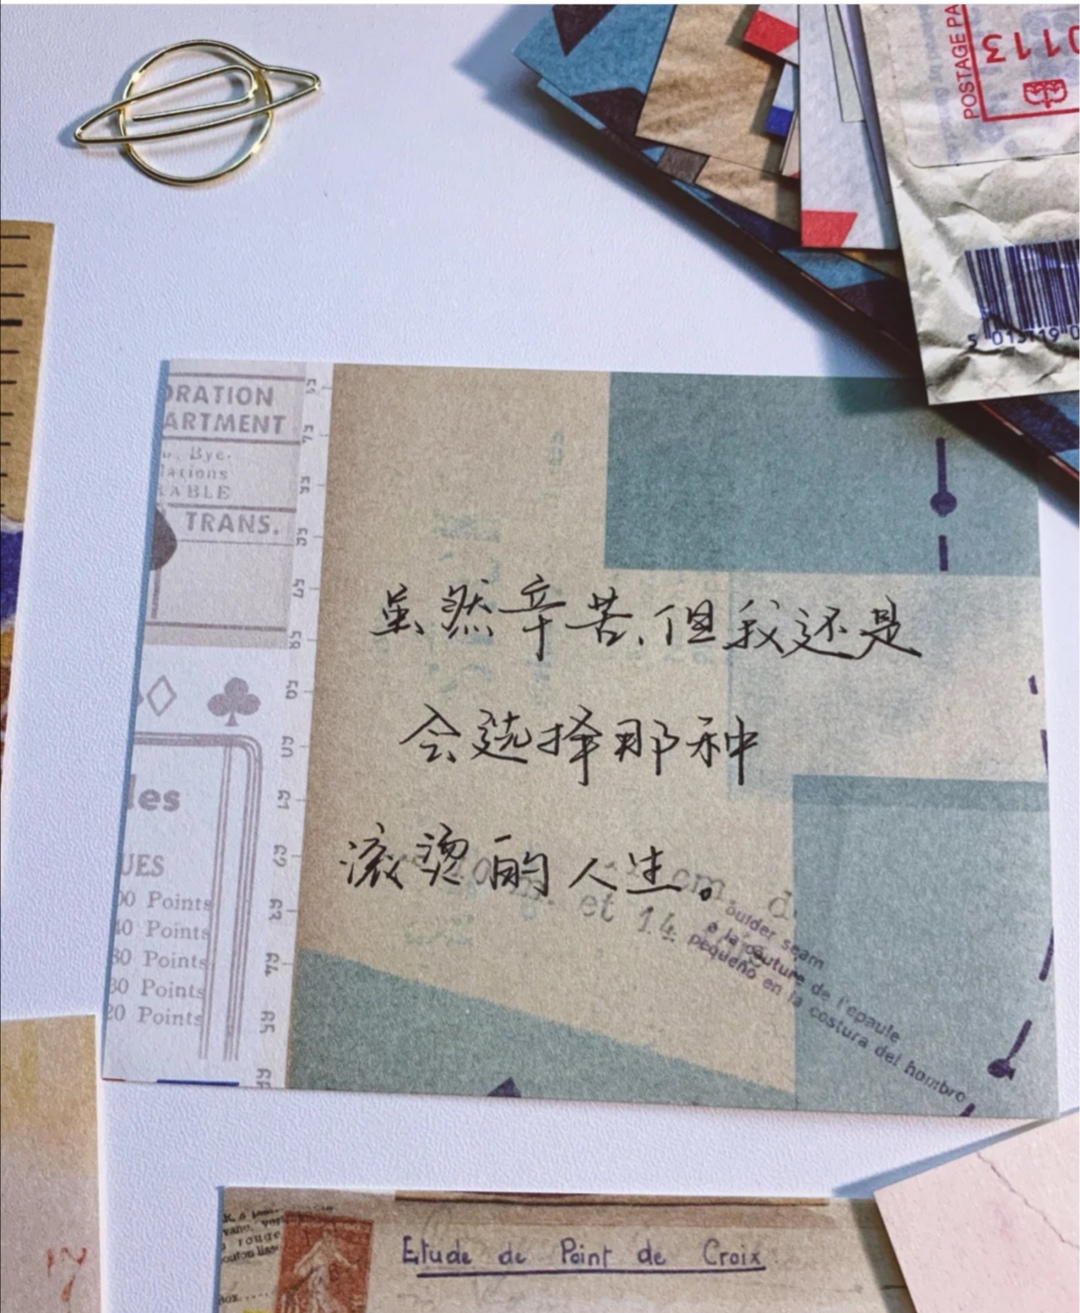 POSTAGE PA
0113
ORATION
ARTMENT
Bye.
lations
ABLE
TRANS.
虽然辛苦,但我还是
会选择那种
滚烫的人生。
les
UES
00 Points
40 Points
80 Points
30 Points
20 Points
cm. d
et 14
oulder seam
à la couture de l'epaule
pequeño en la costura del hombro
rouge
Etude de Point de Croix